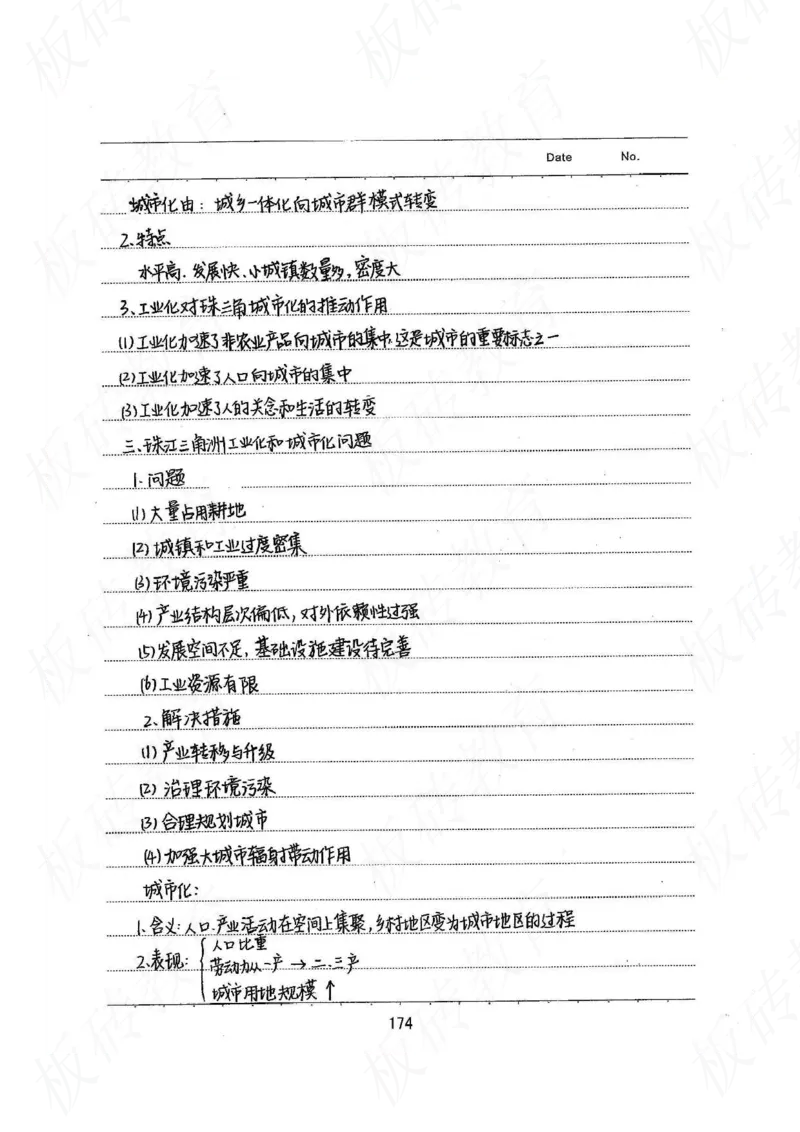 Date No.
城市化由：城乡一体化向城市群模式转变
2.特点
水平高、发展快、小城镇数量多，密度大
3、工业化对珠三角城市化的推动作用
(1)工业化加速了非农业产品向城市的集中，这是城市的重要标志之一
(2)工业化加速了人口向城市的集中
(3)工业化加速了人的关念和生活的转变
三、珠江三角洲工业化和城市化问题
1.问题
(1)大量占用耕地
(2)城镇和工业过度密集
(3)环境污染严重
(4)产业结构层次偏低，对外依赖性过强
(5)发展空间不足，基础设施建设待完善
(6)工业资源有限
2、解决措施
(1)产业转移与升级
(2)治理环境污染
(3)合理规划城市
(4)加强大城市辐射带动作用
城市化：
1、含义：人口.产业活动在空间上集聚，乡村地区变为城市地区的过程
2.表现：
人口比重
劳动力从一产→二.三产
城市用地规模↑
174
板砖教育